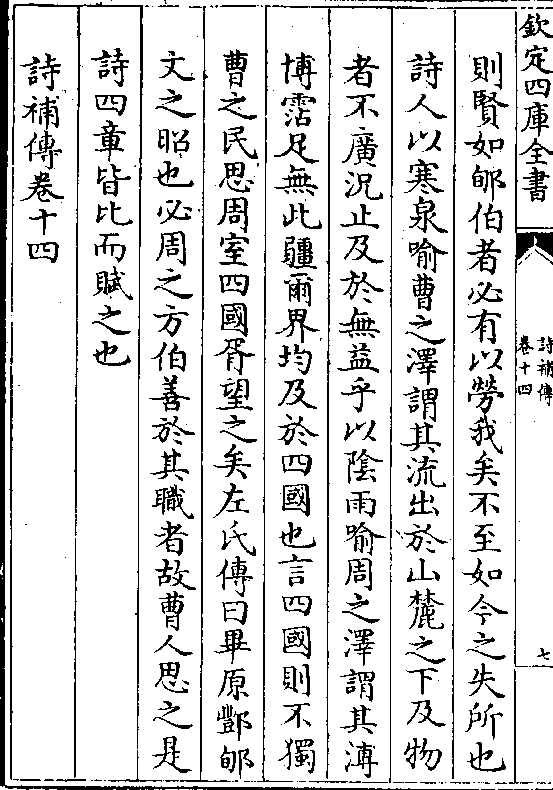 欽定四庫全書
詩補傳
卷十四
七
則賢如郇伯者必有以勞我矣不至如今之失所也
詩人以寒泉喻曹之澤謂其流出於山麓之下及物
者不廣況止及於無益乎以陰雨喻周之澤謂其溥
博霑足無此疆爾界均及於四國也言四國則不獨
曹之民思周室四國胥望之矣左氏傳曰畢原酆郇
文之昭也必周之方伯善於其職者故曹人思之是
詩四章皆比而賦之也
詩補傳卷十四